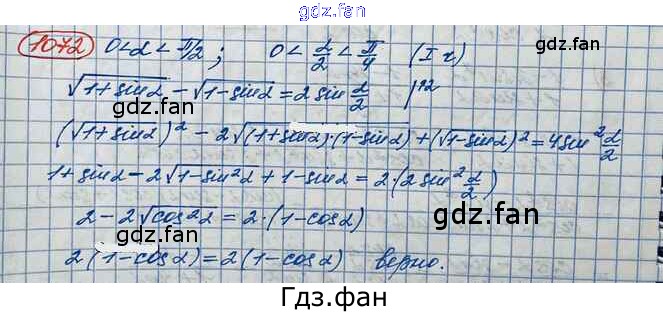 gdz.fan
1072 0<α<π/2; 0<α/2<π/4 (I ч)
gdz.fan
√1+sinα − √1−sinα = 2 sin α/2 |↑2
gdz.fan
(√1+sinα)² − 2√(1+sinα)·(1−sinα) + (√1−sinα)² = 4sin² α/2
1+sinα − 2√1−sin²α + 1−sinα = 2·(2sin² α/2)
gdz.fan
2−2√cos²α = 2·(1−cosα)
gdz.fan
2(1−cosα) = 2(1−cosα) верно.
Гдз.фан